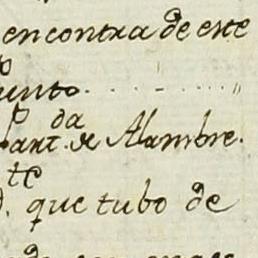 encontra de este
unto
part.da de Alambre.
te que tubo de